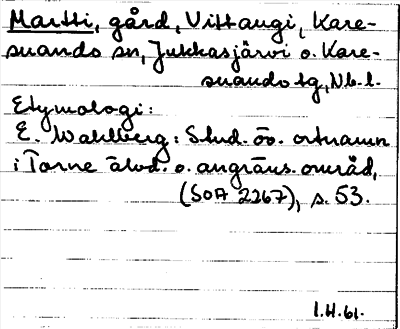 Martti, gård, Vittangi, Kare-
suando sn, Jukkasjärvi o. Kare-
suando tg, Nb. l.
Etymologi:
E. Wahlberg: Stud. öv. ortnamn
i Torne älvd. o. angräns. område,
(SOA 2267), s. 53.
I.H. 61.